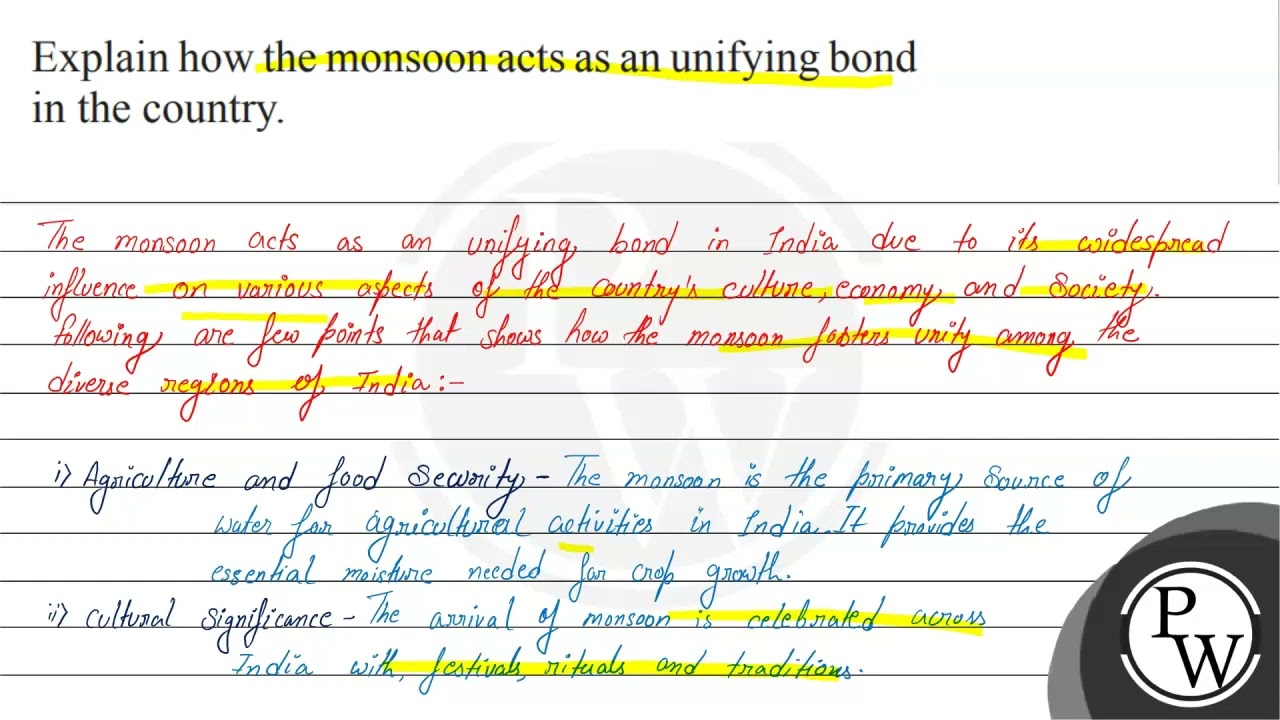 Explain how the monsoon acts as an unifying bond
in the country.
The monsoon acts as an unifying bond in India due to its widespread
influence on various aspects of the country's culture, economy and Society.
following are few points that shows how the monsoon fosters unity among the
diverse regions of India:-
i) Agriculture and food Security - The monsoon is the primary source of
water for agricultural activities in India. It provides the
essential moisture needed for crop growth.
ii) Cultural Significance - The arrival of monsoon is celebrated across
India with, festivals, rituals and traditions.
P
W
P
W